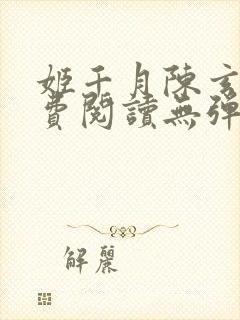 姬千月陳玄
費閱讀無彈
解麗